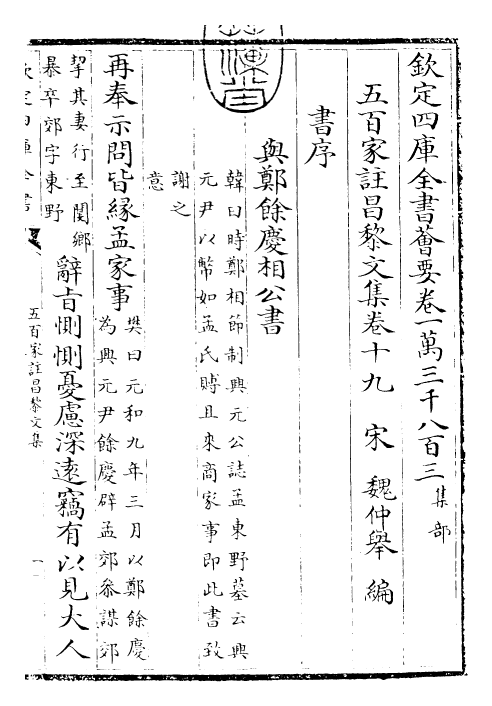 欽定四庫全書薈要卷一萬三千八百三 集部
五百家註昌黎文集卷十九 宋 魏仲舉 編
書序
與鄭餘慶相公書
韓曰時鄭相節制興元公誌孟東野墓云興
元尹以幣如孟氏賻且來商家事即此書致
謝之
意
再奉示問皆緣孟家事
樊曰元和九年三月以鄭餘慶
為興元尹餘慶辟孟郊叅謀郊
挈其妻行至閿鄉
暴卒郊字東野
辭旨惻惻憂慮深遠竊有以見大人
欽定四庫全書
五百家註昌黎文集 一